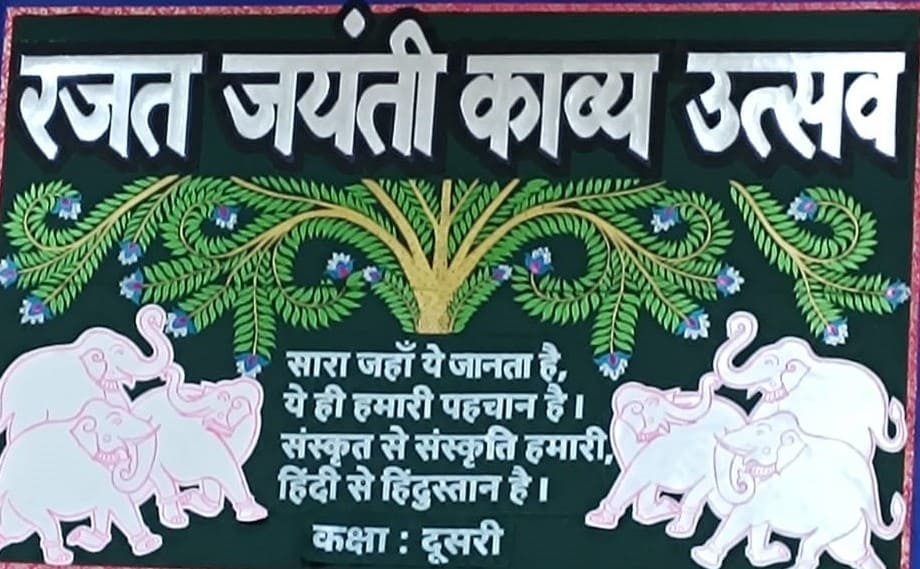 रजत जयंती काव्य उत्सव
सारा जहाँ ये जानता है,
ये ही हमारी पहचान है।
संस्कृत से संस्कृति हमारी,
हिंदी से हिंदुस्तान है।
कक्षा : दूसरी